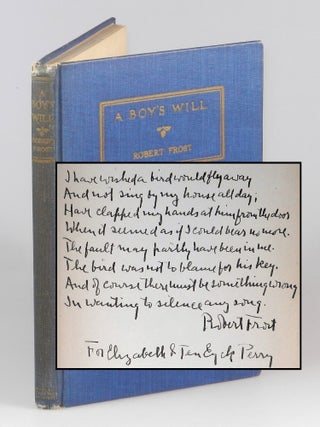 A BOY'S
WILL
ROBERT
FROST
A BOY'S WILL
ROBERT FROST
I have wished a bird would fly away
And not sing by my house all day;
Have clapped my hands at him from the door
When it seemed as if I could bear no more.
The fault may partly have been in me.
The bird was not to blame for his key.
And of course there must be something wrong
In wanting to silence any song.
Robert Frost
For Elizabeth & Ten Eyck Perry